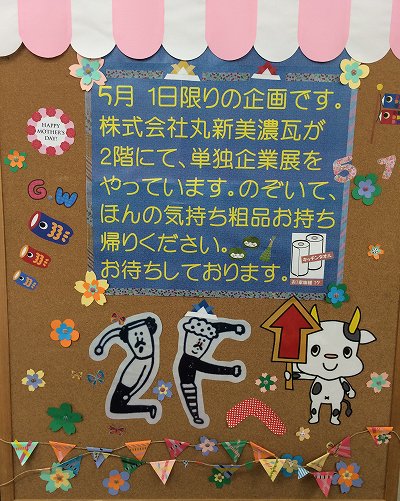 5月 1日限りの企画です。
株式会社丸新美濃瓦が
2階にて、単独企業展を
やっています。のぞいて、
ほんの気持ち粗品お持ち
帰りください。
お待ちしております。
HAPPY
MOTHER'S
DAY!
G.W
5 1
キッチンタオル
2F